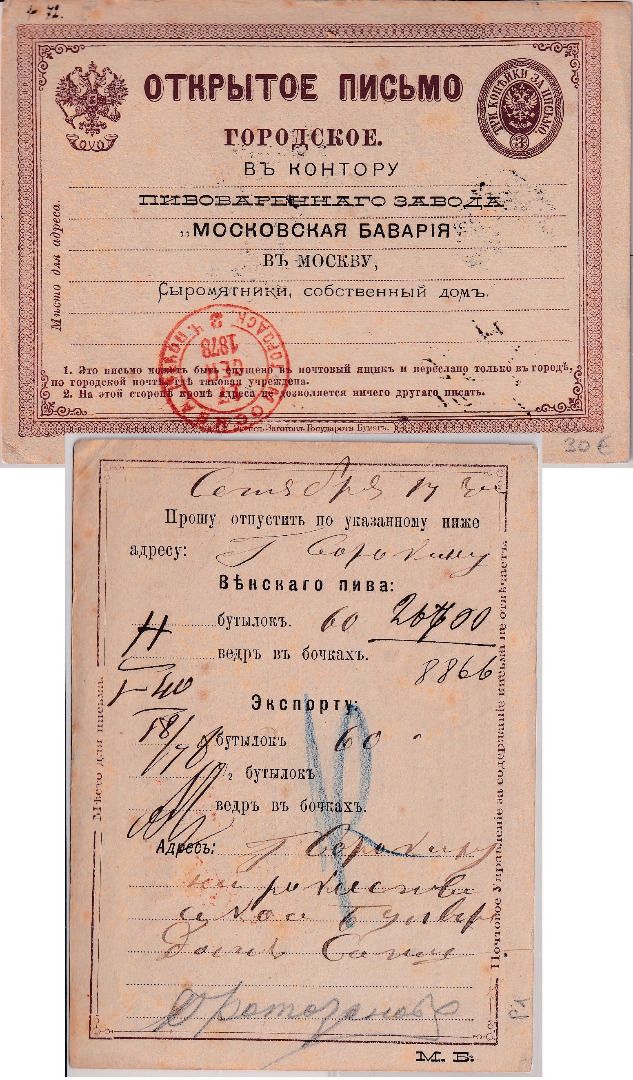 ОТКРЫТОЕ ПИСЬМО
ТРИ КОПѢЙКИ ЗА ПИСЬМО
3
ГОРОДСКОЕ.
ВЪ КОНТОРУ
ПИВОВАРЕННАГО ЗАВОДА
„МОСКОВСКАЯ БАВАРІЯ"
ВЪ МОСКВУ,
Сыромятники, собственный домъ.
Мѣсто для адреса.
1878
1. Это письмо можетъ быть опущено въ почтовый ящикъ и переслано только въ городѣ,
по городской почтѣ, гдѣ таковая учреждена.
2. На этой сторонѣ кромѣ адреса не дозволяется ничего другаго писать.
Заготов. Государств. Бумагъ.
30 €
Сентября 17
Прошу отпустить по указанному ниже
адресу: Г Сорокину
Вѣнскаго пива:
бутылокъ. 60 26700
ведръ въ бочкахъ.
8866
40
Экспорту:
18/
бутылокъ 60
½ бутылокъ
ведръ въ бочкахъ.
Адресъ: Г Сорокину
Мѣсто для письма.
Почтовое Управленіе за содержаніе письма не отвѣчаетъ.
М. Б.